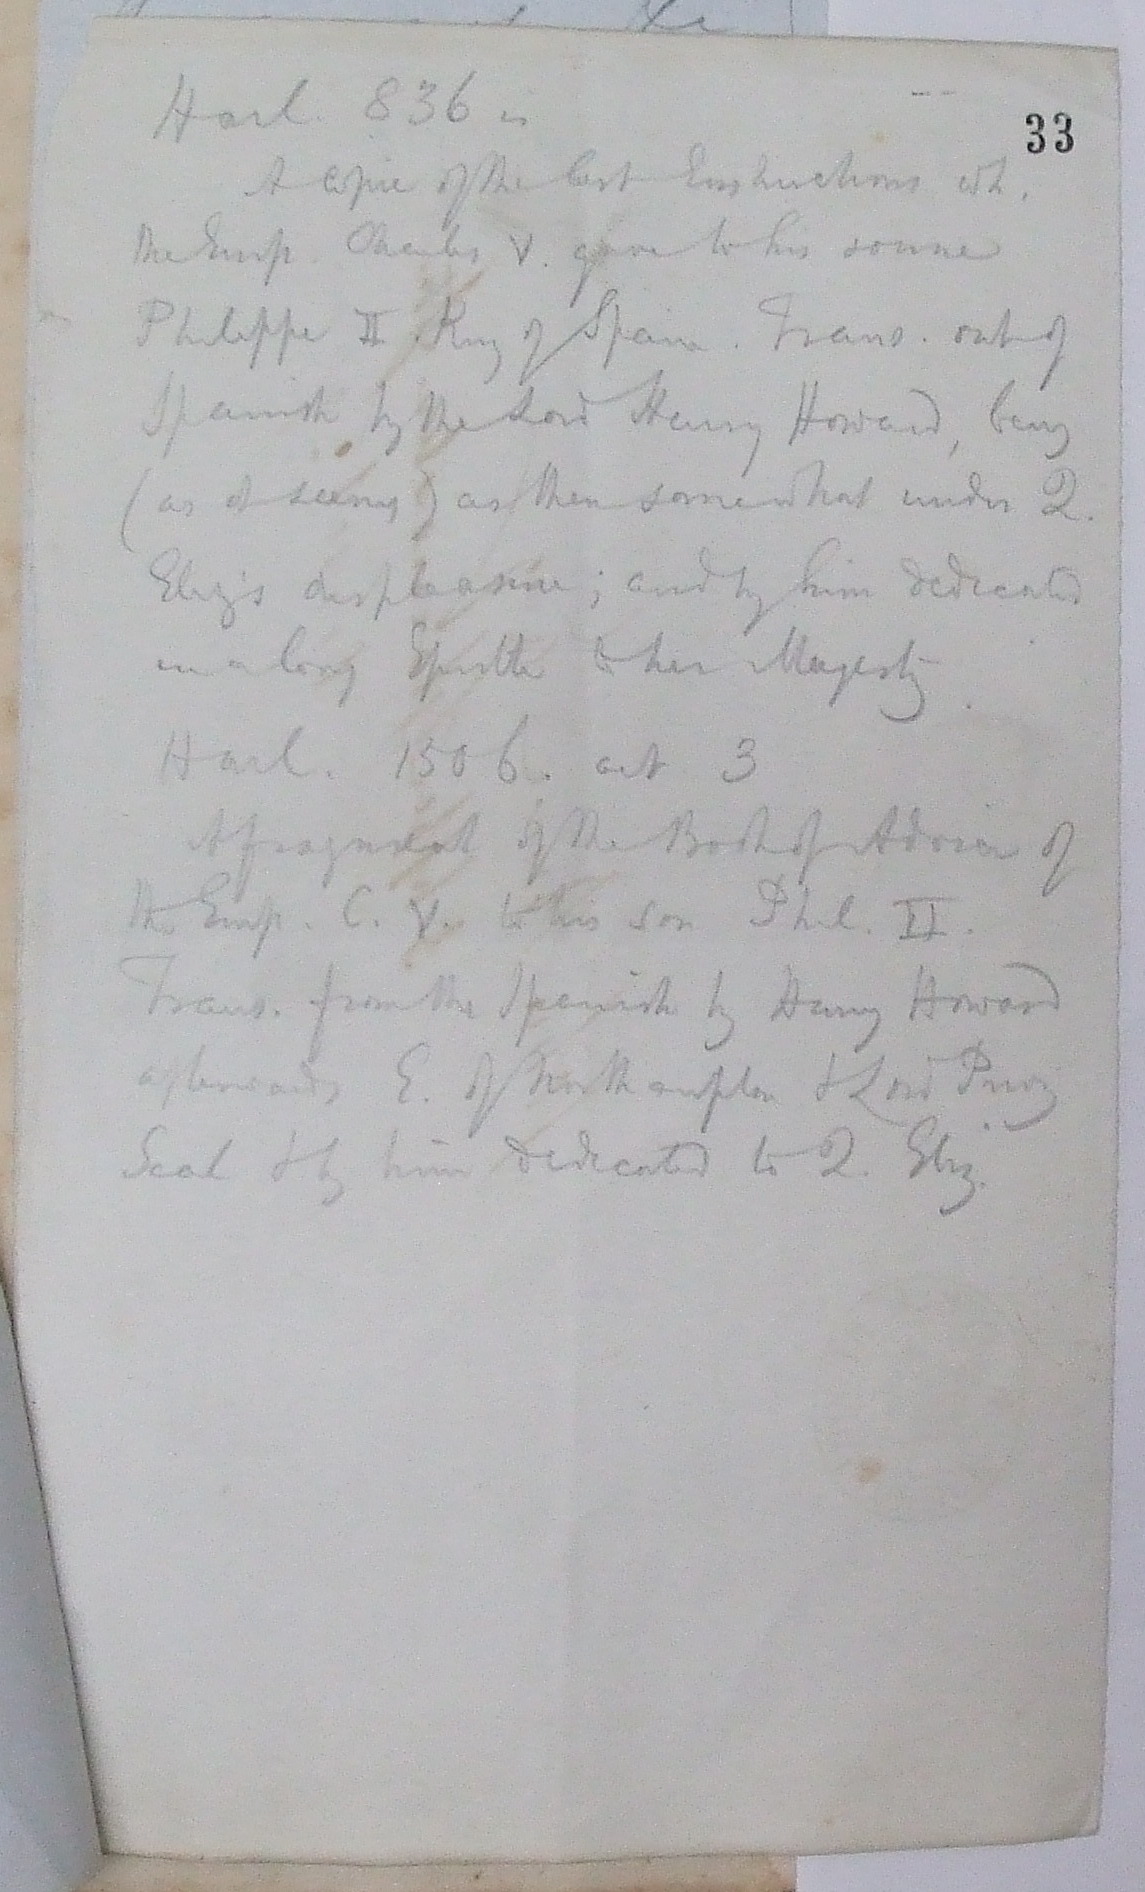 33
Harl. 836 is
A Copie of the last Instructions wh.
the Emp. Charles V. gave to his sonne
Philippe II King of Spain. Trans. out of
Spanish by the Lord Henry Howard, being
(as it seems) as then somewhat under Q.
Eliz's displeasure; and by him dedicated
in a long Epistle to her Majesty.
Harl. 1506. art 3
A fragment of the Book of Advice of
the Emp. C. V. to his son Phil. II.
Trans. from the Spanish by Henry Howard
afterwards E. of Northampton & Lord Privy
Seal & by him dedicated to Q. Eliz.